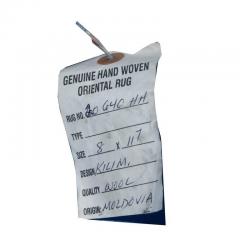 GENUINE HAND WOVEN
ORIENTAL RUG
RUG NO. 20640 HH
TYPE
SIZE 8 x 11'7
DESIGN KILIM,
QUALITY WOOL
ORIGIN MOLDOVIA